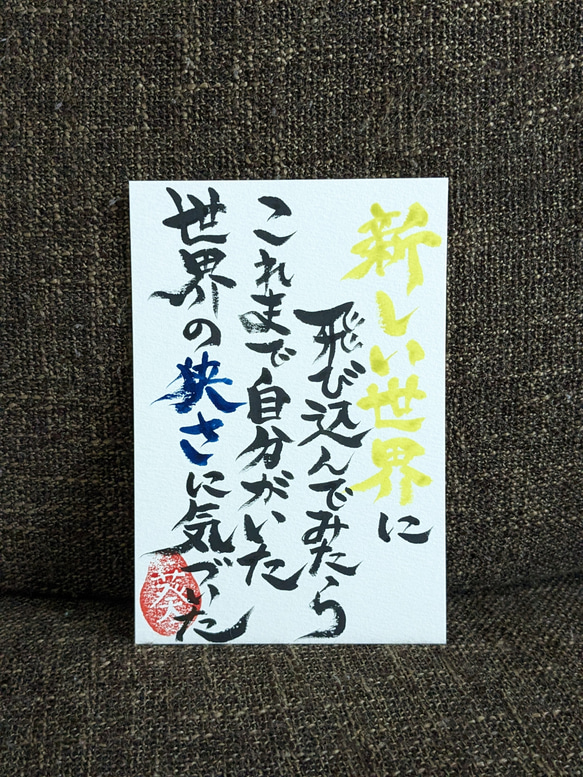 新しい世界に
飛び込んでみたら
これまで自分がいた
世界の狭さに気づいた
葵